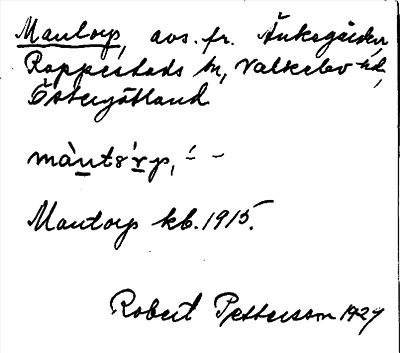 Mantorp, avs. fr. Änkegården,
Rappestads sn, Valkebo hd,
Östergötland
màntsr̀p, ´ –
Mantorp kb. 1915.
Robert Pettersson 1929